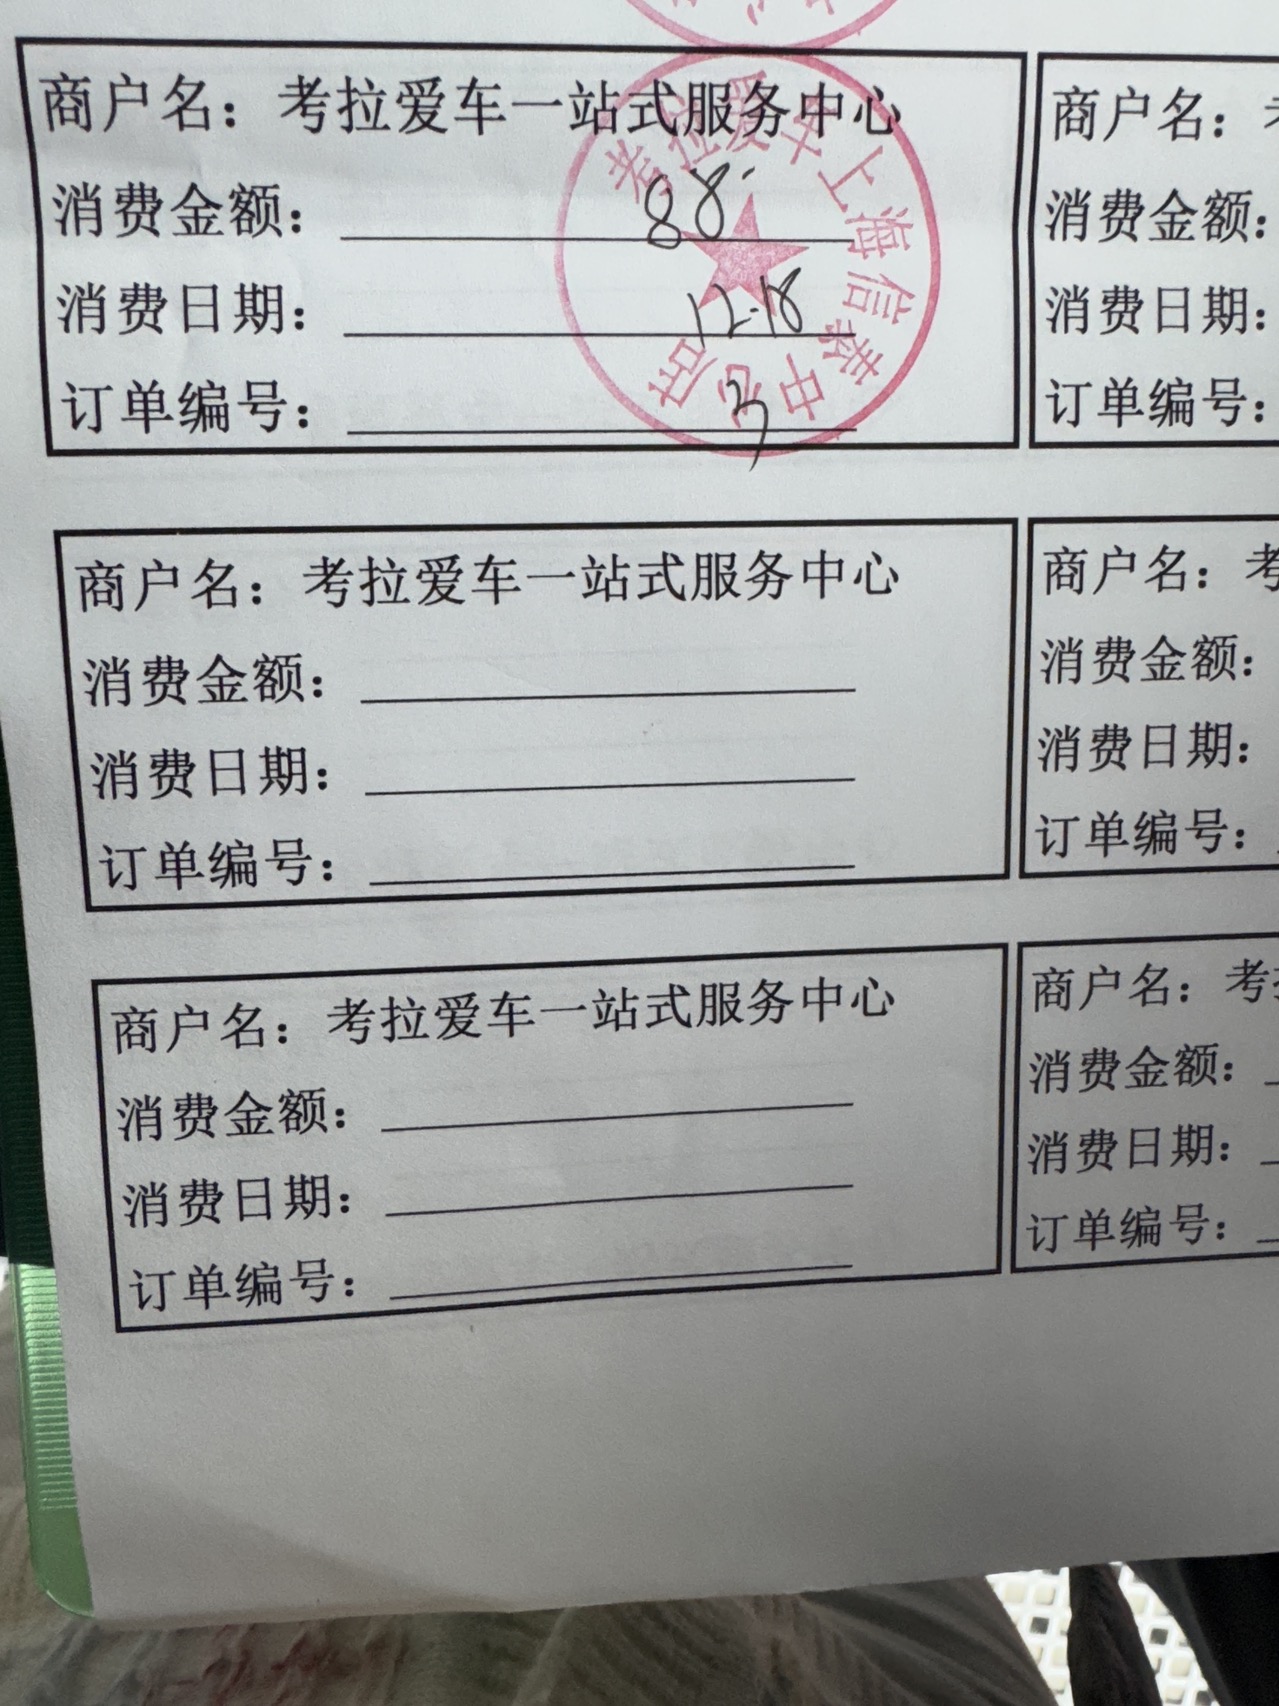 商户名：考拉爱车一站式服务中心
消费金额：88.
消费日期：12.18
订单编号：3
考拉爱车上海信泰中心店
商户名：考
消费金额：
消费日期：
订单编号：
商户名：考拉爱车一站式服务中心
消费金额：
消费日期：
订单编号：
商户名：考
消费金额：
消费日期：
订单编号：
商户名：考拉爱车一站式服务中心
消费金额：
消费日期：
订单编号：
商户名：考拉
消费金额：
消费日期：
订单编号：